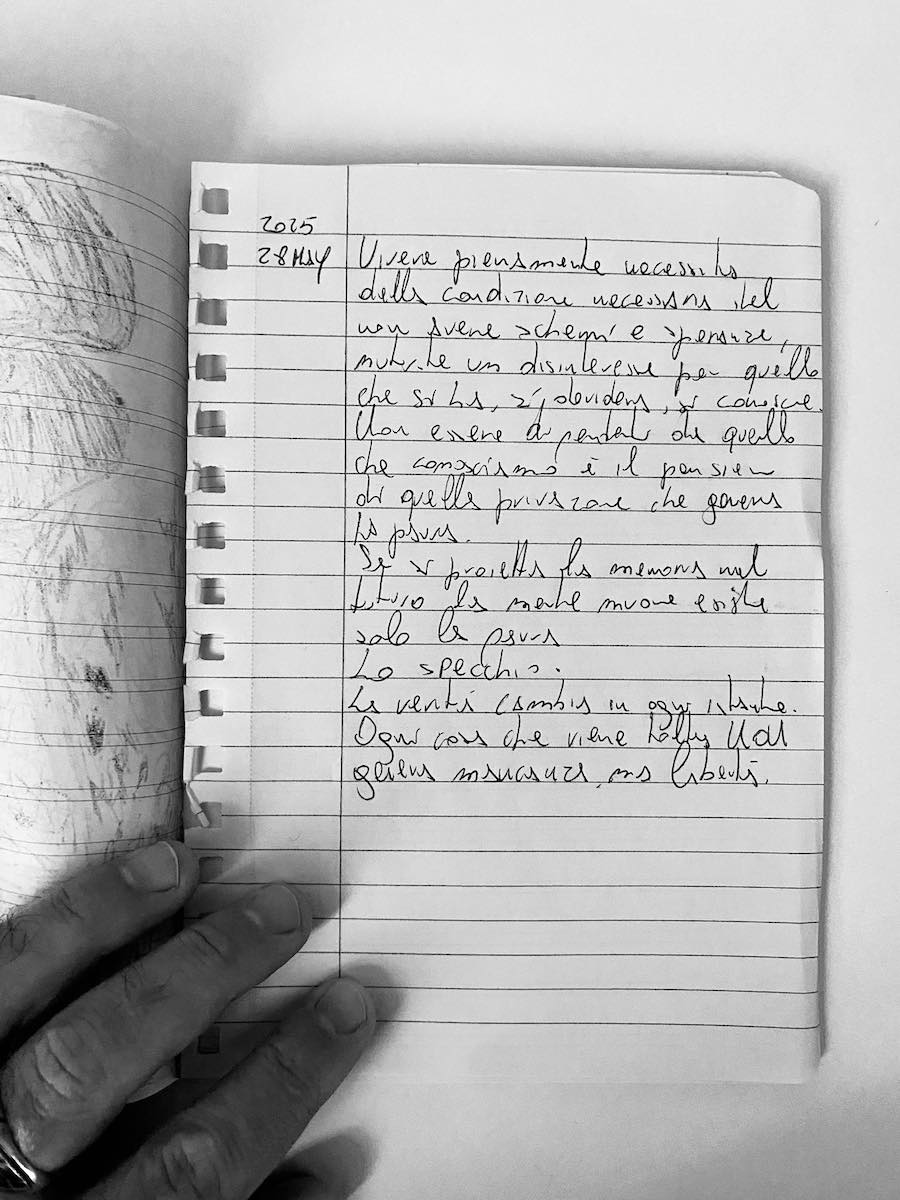 2025
28 May
Vivere pienamente necessita
della condizione necessaria del
non avere schemi e speranze,
nutrite un disinteresse per quello
che si ha, si desidera, si conosce.
Non essere dipendenti da quello
che conosciamo è il pensiero
di quella privazione che genera
la paura.
Se si proietta la memoria nel
futuro la mente muore esiste
solo la paura
Lo specchio.
La verità cambia in ogni istante.
Ogni cosa che viene tolta NON
genera mancanza, ma libertà.